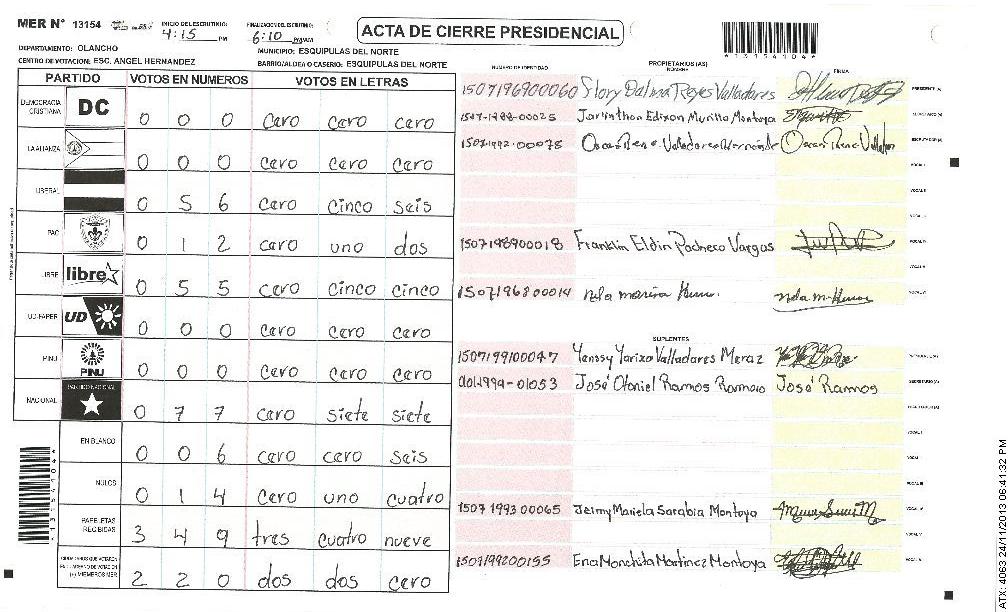 MER N° 13154
INICIO DE ESCRUTINIO: 4:15 PM
FINALIZACION DEL ESCRUTINIO: 6:10 PM/AM
ACTA DE CIERRE PRESIDENCIAL
*13154104*
DEPARTAMENTO: OLANCHO
MUNICIPIO: ESQUIPULAS DEL NORTE
CENTRO DE VOTACION: ESC. ANGEL HERNANDEZ
BARRIO/ALDEA O CASERIO: ESQUIPULAS DEL NORTE
PARTIDO VOTOS EN NUMEROS VOTOS EN LETRAS
DEMOCRACIA CRISTIANA DC 0 0 0 cero cero cero
LA ALIANZA 0 0 0 cero cero cero
LIBERAL 0 5 6 cero cinco seis
PAC 0 1 2 cero uno dos
LIBRE libre 0 5 5 cero cinco cinco
UD-FAPER UD 0 0 0 cero cero cero
PINU PINU 0 0 0 cero cero cero
NACIONAL PARTIDO NACIONAL 0 7 7 cero siete siete
EN BLANCO 0 0 6 cero cero seis
NULOS 0 1 4 cero uno cuatro
PAPELETAS RECIBIDAS 3 4 9 tres cuatro nueve
CIUDADANOS QUE VOTARON EN CUADERNO DE VOTACION (+) MIEMBROS MER 2 2 0 dos dos cero
NUMERO DE IDENTIDAD PROPIETARIOS (AS) NOMBRE FIRMA
1507196900060 Flory Dalma Reyes Valladares PRESIDENTE (A)
1507-1988-00025 Jarlinthon Edixon Murillo Montoya SECRETARIO (A)
1507-1992-00078 Oscar Rene Valladares Hernandez Oscar Rene ESCRUTADOR (A)
VOCAL I
VOCAL II
1507198900018 Franklin Eldin Pacheco Vargas
1507196800014
SUPLENTES
1507199100047 Yenssy Yarixa Valladares Meraz
-01053 José Otoniel Ramos Romero José Ramos SECRETARIO (A)
ESCRUTADOR (A)
VOCAL I
VOCAL II
VOCAL III
1507 1993 00065 Jeimy Mariela Sarabia Montoya
1507199200155 Ena Monchita Martinez Montoya
*13154104*
ATX: 4063 24/11/2013 06:41:32 PM